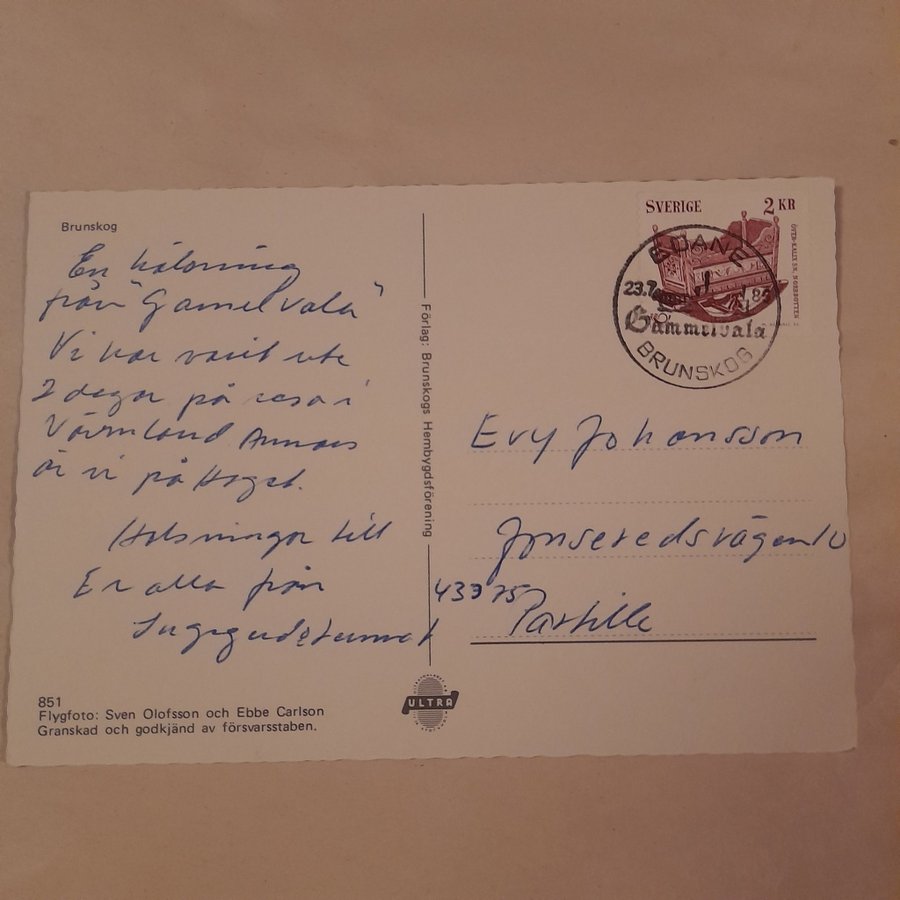 Brunskog
En hälsning
från "Gamelvala"
Vi har varit ute
2 dagar på resa i
Värmland Annars
är vi på Hogst.
Hälsningar till
Er alla från
Förlag: Brunskogs Hembygdsförening
851
Flygfoto: Sven Olofsson och Ebbe Carlson
Granskad och godkjänd av försvarsstaben.
ULTRA
SVERIGE 2 KR
EDANE
23.7
Gammelvala
BRUNSKOG
Evy Johansson
Jonseredsvägen 10
433 75
Partille